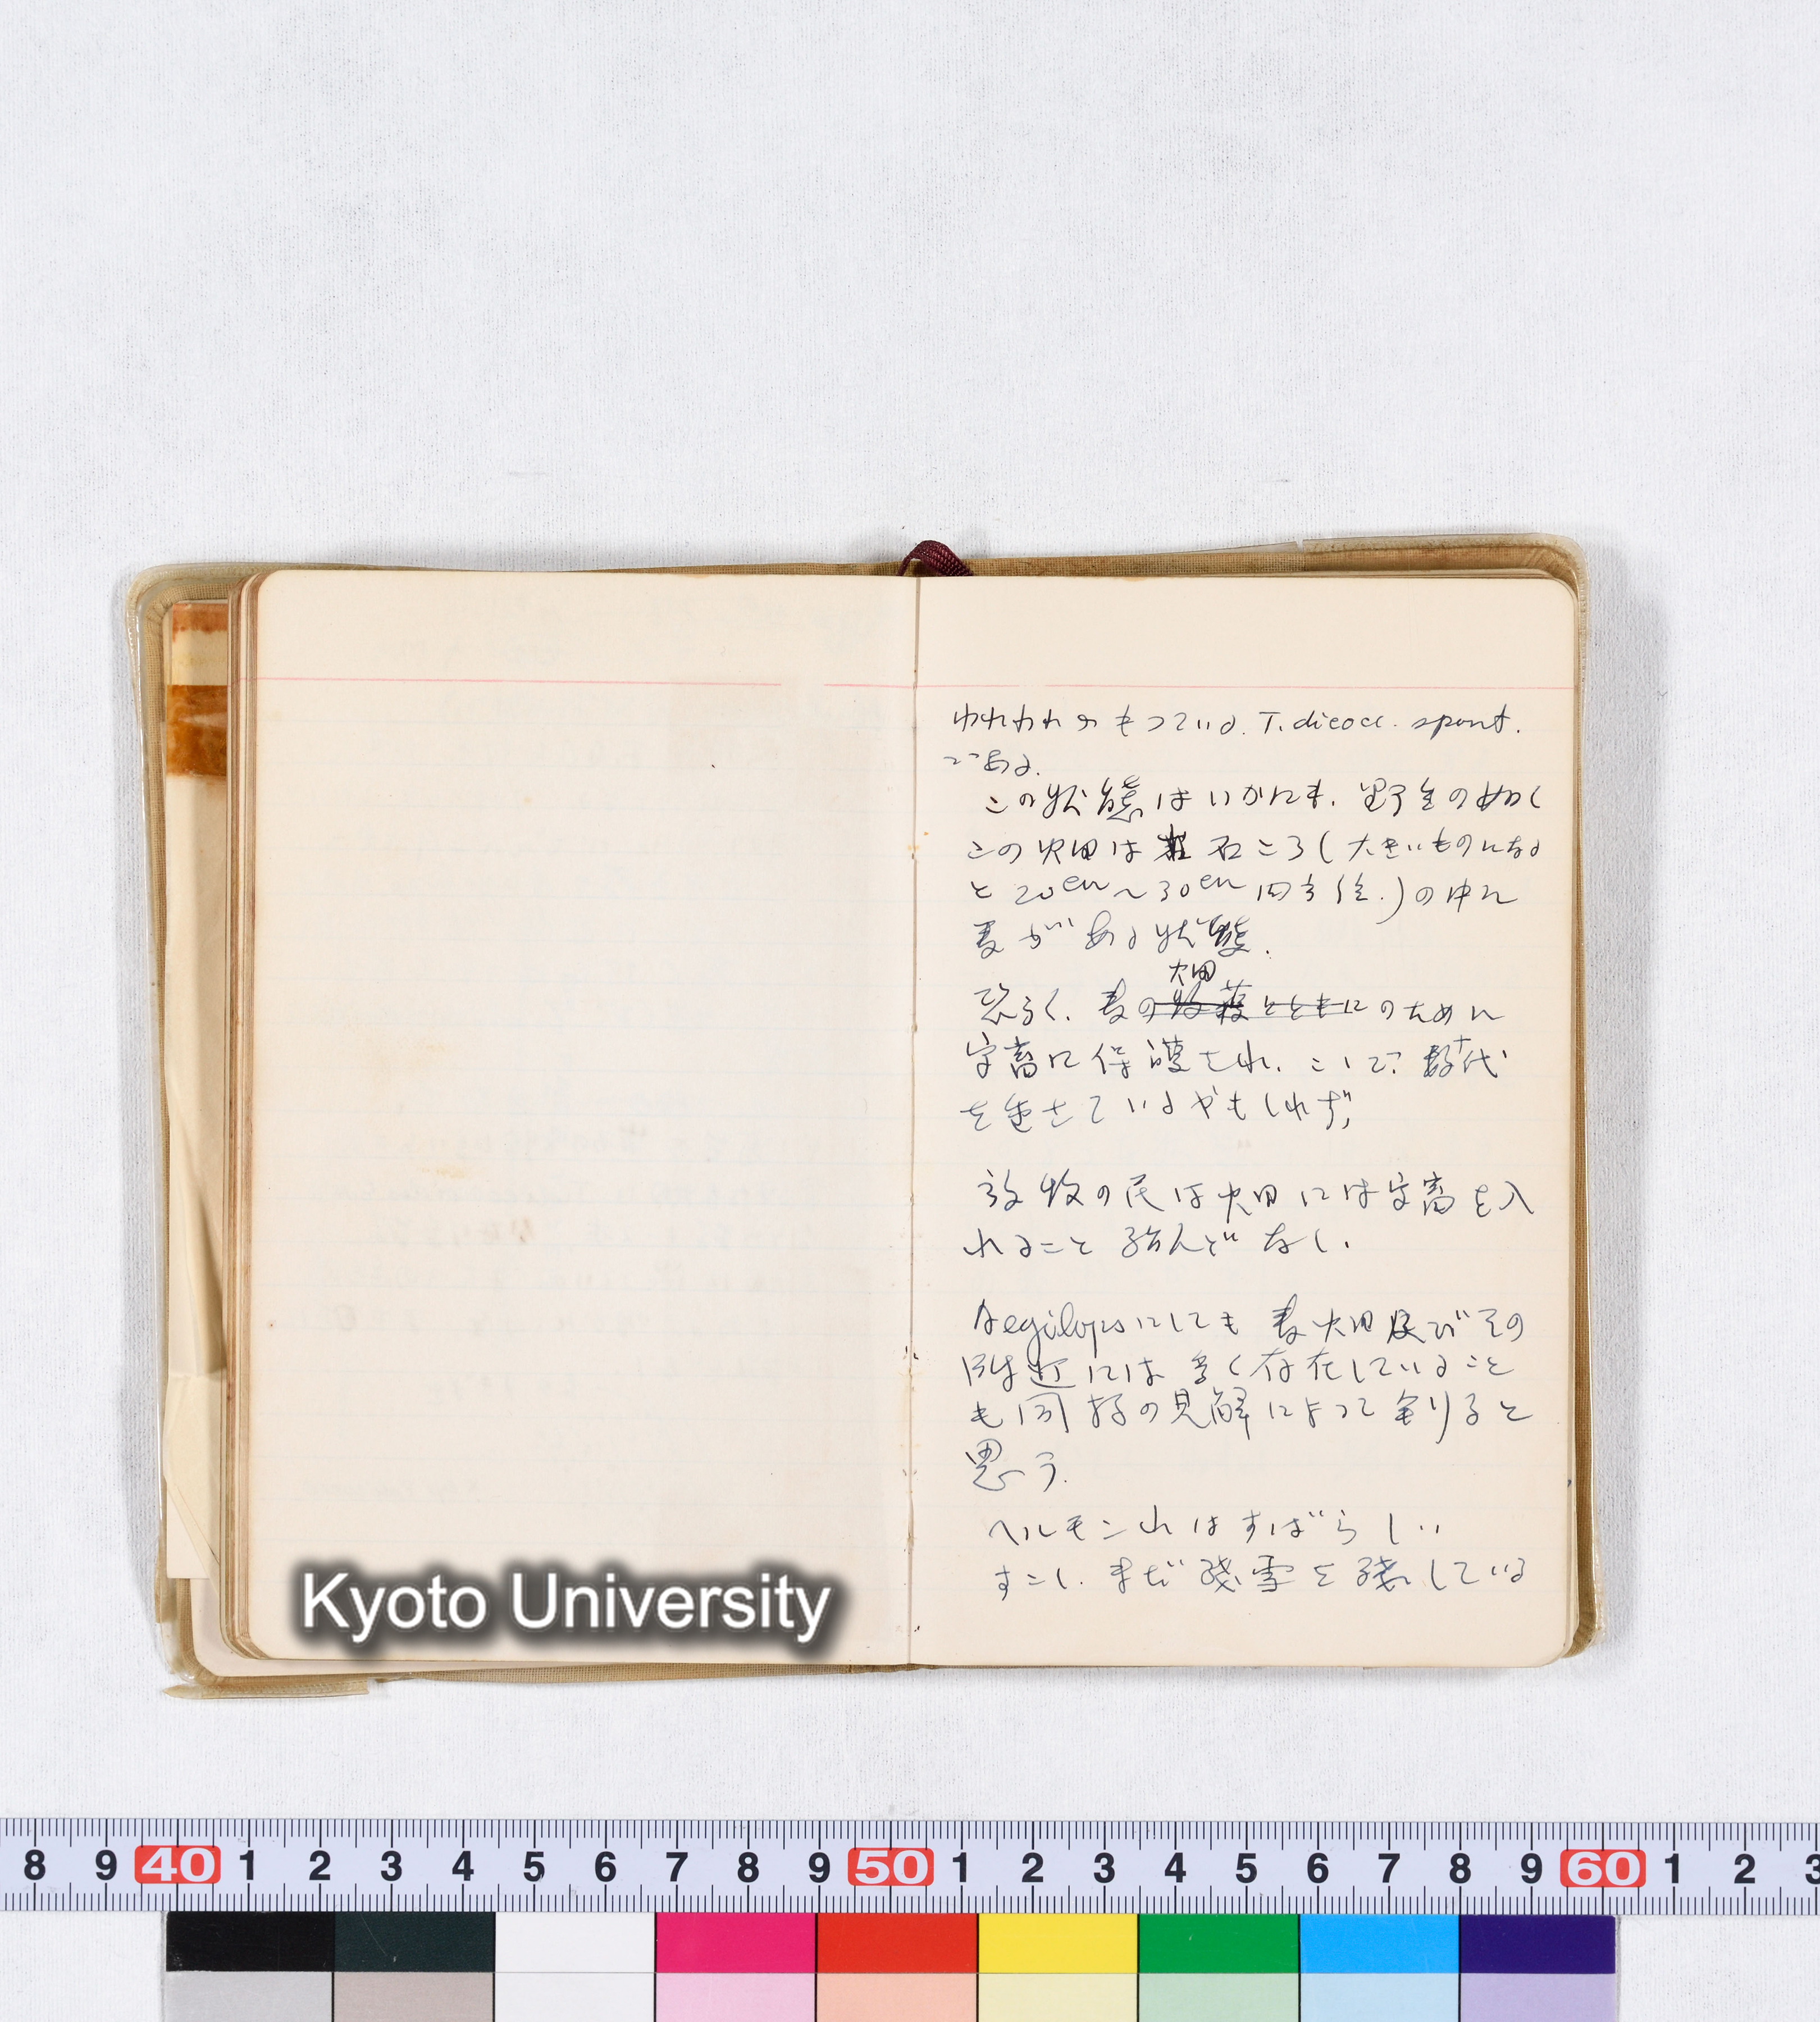 われわれのもっている. T. dicocc. spont.
である.
この状態はいかにも. 野生の如く
この畑は 石ころ(大きいものになる
と20cm〜30cm四方位.)の中に
麦がある状態.
畑
恐らく. 麦の収穫とともにのために
家畜に保護され. こゝで? 数十代
を過さているやもしれず,
放牧の民は畑には家畜を入
れること殆んどなし.
Aegilopsにしても麦畑及びその
附近には多く存在していること
も同様の見解によって判ると
思う.
ヘルモン山はすばらしい
すこし. まだ残雪を残している
Kyoto University
8 9 40 1 2 3 4 5 6 7 8 9 50 1 2 3 4 5 6 7 8 9 60 1 2 3